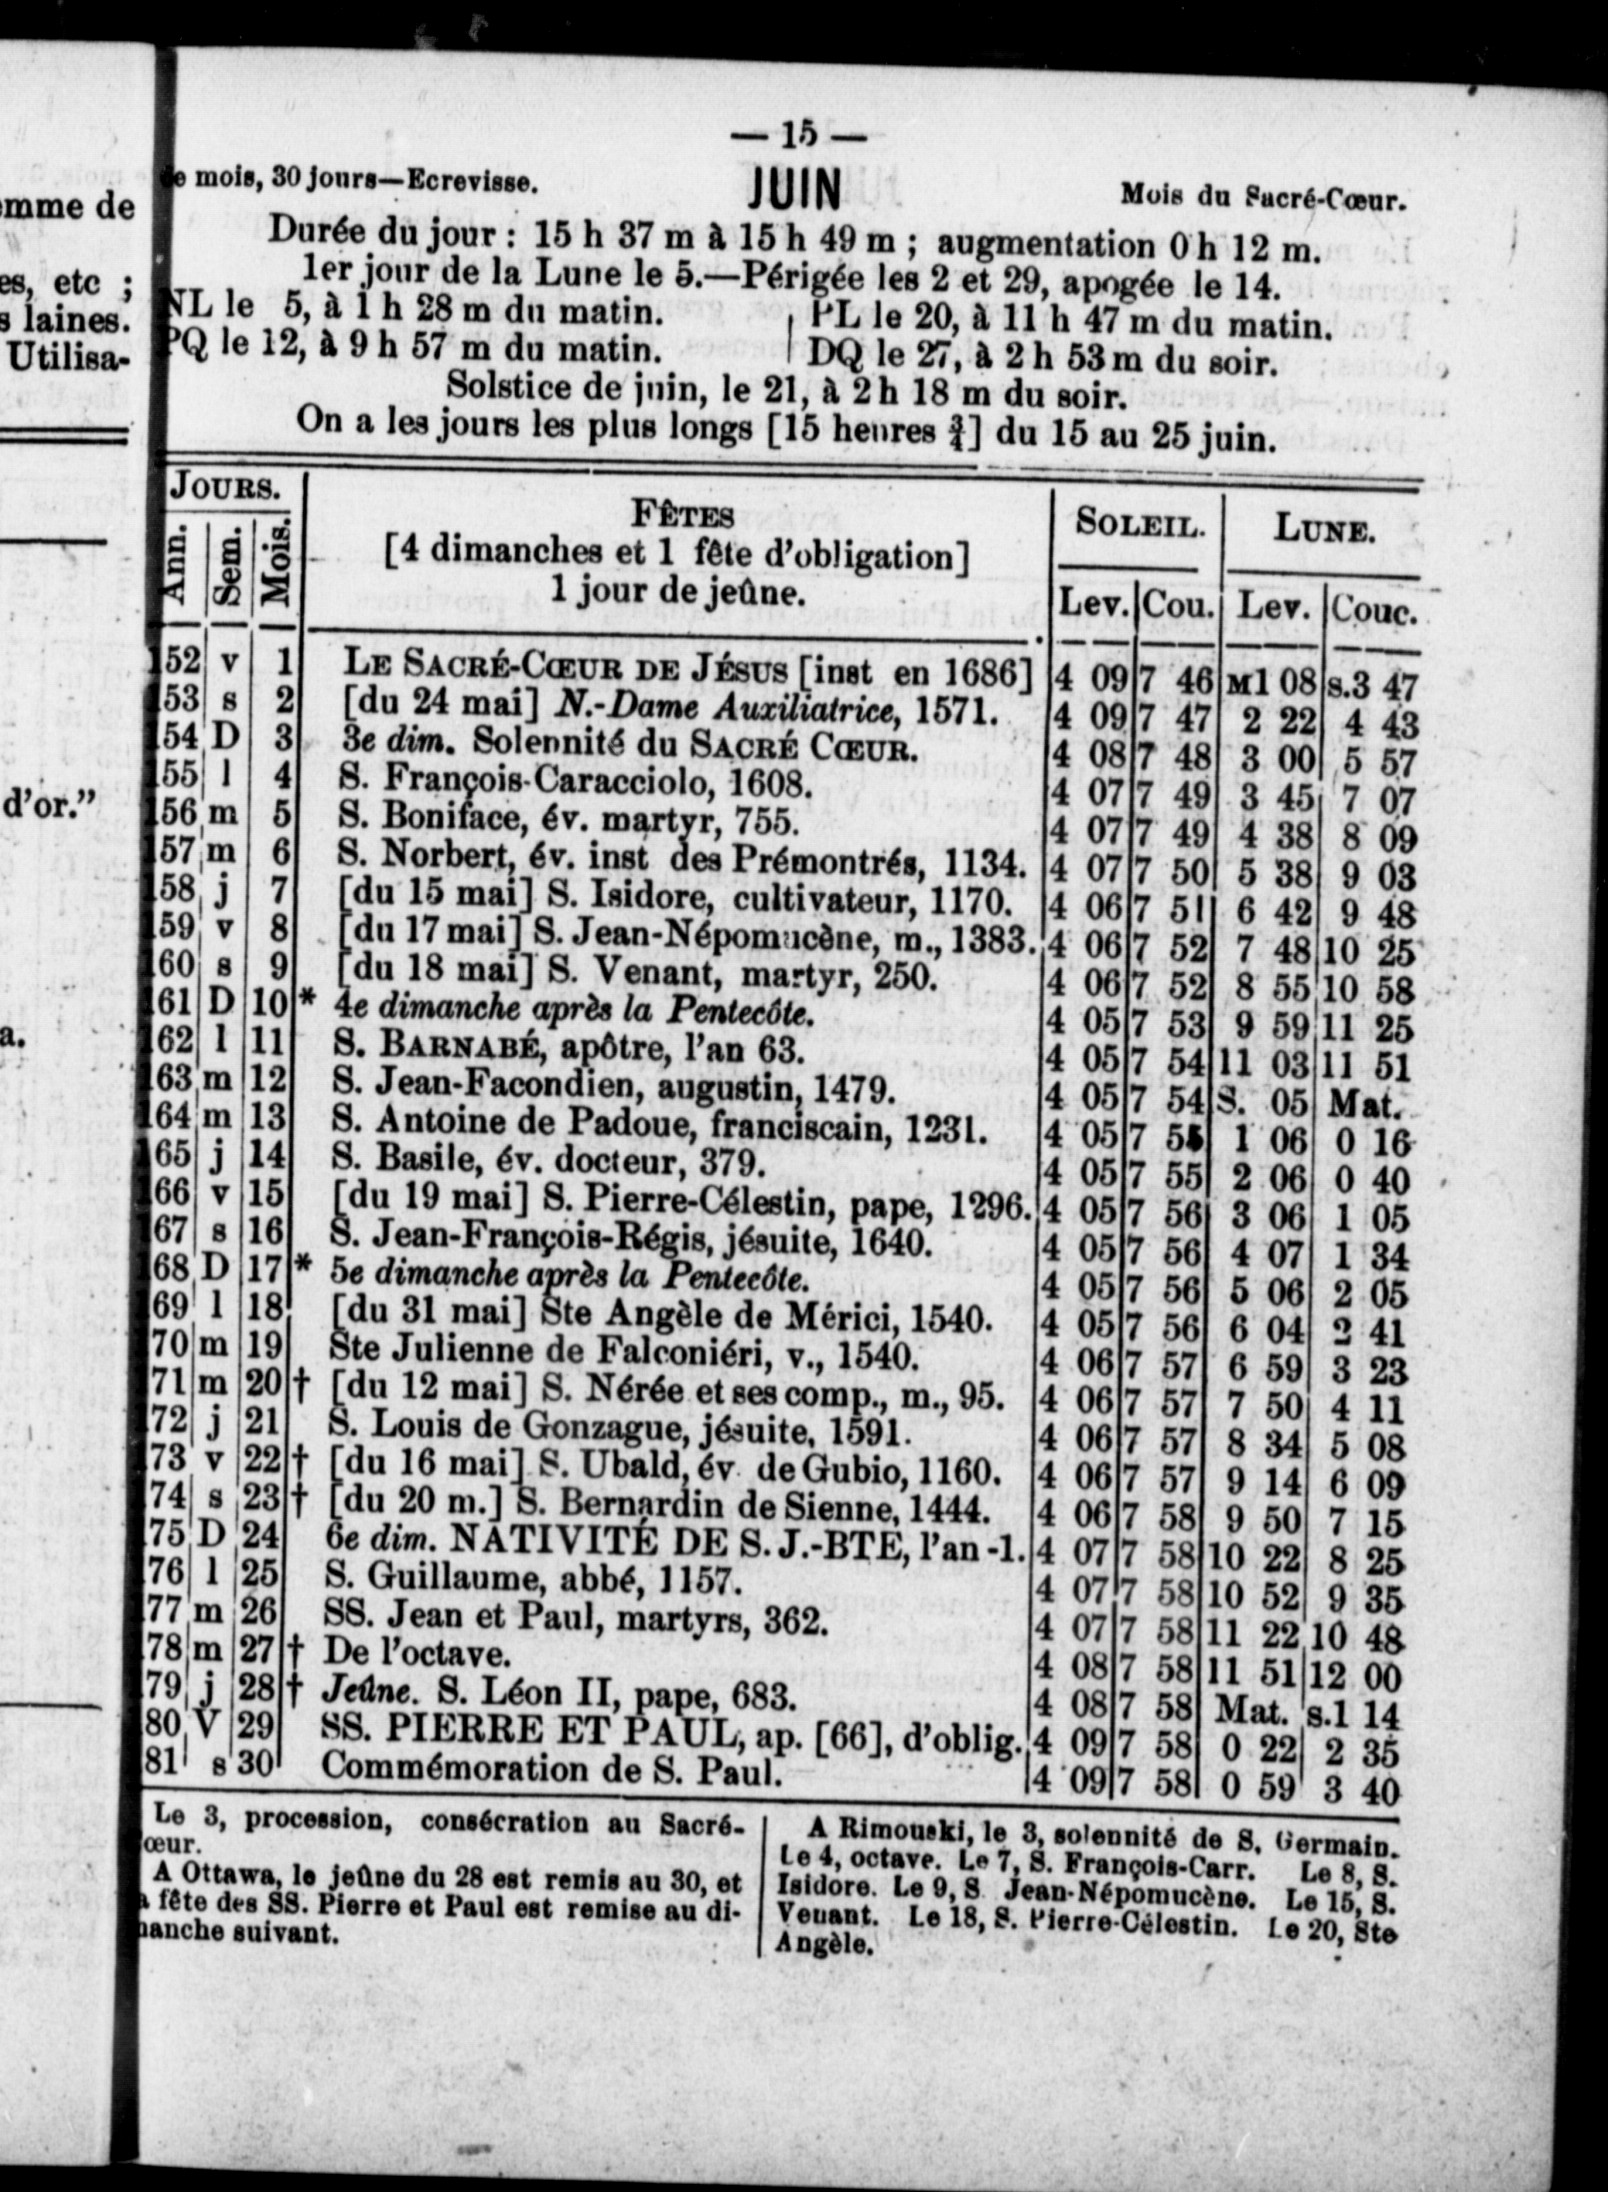 — 15 —
mois, 30 jours—Ecrevisse. JUIN Mois du Sacré-Cœur.
Durée du jour : 15 h 37 m à 15 h 49 m ; augmentation 0 h 12 m.
1er jour de la Lune le 5.—Périgée les 2 et 29, apogée le 14.
NL le 5, à 1 h 28 m du matin. PL le 20, à 11 h 47 m du matin.
PQ le 12, à 9 h 57 m du matin. DQ le 27, à 2 h 53 m du soir.
Solstice de juin, le 21, à 2 h 18 m du soir.
On a les jours les plus longs [15 heures ¾] du 15 au 25 juin.
JOURS. FÊTES SOLEIL. LUNE.
[4 dimanches et 1 fête d'obligation]
1 jour de jeûne.
Ann. Sem. Mois. Lev. Cou. Lev. Couc.
152 v 1 LE SACRÉ-CŒUR DE JÉSUS [inst en 1686] 4 09 7 46 M1 08 s.3 47
153 s 2 [du 24 mai] N.-Dame Auxiliatrice, 1571. 4 09 7 47 2 22 4 43
154 D 3 3e dim. Solennité du SACRÉ CŒUR. 4 08 7 48 3 00 5 57
155 l 4 S. François-Caracciolo, 1608. 4 07 7 49 3 45 7 07
156 m 5 S. Boniface, év. martyr, 755. 4 07 7 49 4 38 8 09
157 m 6 S. Norbert, év. inst des Prémontrés, 1134. 4 07 7 50 5 38 9 03
158 j 7 [du 15 mai] S. Isidore, cultivateur, 1170. 4 06 7 51 6 42 9 48
159 v 8 [du 17 mai] S. Jean-Népomucène, m., 1383. 4 06 7 52 7 48 10 25
160 s 9 [du 18 mai] S. Venant, martyr, 250. 4 06 7 52 8 55 10 58
161 D 10 * 4e dimanche après la Pentecôte. 4 05 7 53 9 59 11 25
162 l 11 S. BARNABÉ, apôtre, l'an 63. 4 05 7 54 11 03 11 51
163 m 12 S. Jean-Facondien, augustin, 1479. 4 05 7 54 S. 05 Mat.
164 m 13 S. Antoine de Padoue, franciscain, 1231. 4 05 7 55 1 06 0 16
165 j 14 S. Basile, év. docteur, 379. 4 05 7 55 2 06 0 40
166 v 15 [du 19 mai] S. Pierre-Célestin, pape, 1296. 4 05 7 56 3 06 1 05
167 s 16 S. Jean-François-Régis, jésuite, 1640. 4 05 7 56 4 07 1 34
168 D 17 * 5e dimanche après la Pentecôte. 4 05 7 56 5 06 2 05
169 l 18 [du 31 mai] Ste Angèle de Mérici, 1540. 4 05 7 56 6 04 2 41
70 m 19 Ste Julienne de Falconiéri, v., 1540. 4 06 7 57 6 59 3 23
71 m 20 † [du 12 mai] S. Nérée et ses comp., m., 95. 4 06 7 57 7 50 4 11
72 j 21 S. Louis de Gonzague, jésuite, 1591. 4 06 7 57 8 34 5 08
73 v 22 † [du 16 mai] S. Ubald, év. de Gubio, 1160. 4 06 7 57 9 14 6 09
74 s 23 † [du 20 m.] S. Bernardin de Sienne, 1444. 4 06 7 58 9 50 7 15
75 D 24 6e dim. NATIVITÉ DE S. J.-BTE, l'an -1. 4 07 7 58 10 22 8 25
76 l 25 S. Guillaume, abbé, 1157. 4 07 7 58 10 52 9 35
77 m 26 SS. Jean et Paul, martyrs, 362. 4 07 7 58 11 22 10 48
78 m 27 † De l'octave. 4 08 7 58 11 51 12 00
79 j 28 † Jeûne. S. Léon II, pape, 683. 4 08 7 58 Mat. s.1 14
80 V 29 SS. PIERRE ET PAUL, ap. [66], d'oblig. 4 09 7 58 0 22 2 35
81 s 30 Commémoration de S. Paul. 4 09 7 58 0 59 3 40
Le 3, procession, consécration au Sacré-
œur.
A Ottawa, le jeûne du 28 est remis au 30, et
fête des SS. Pierre et Paul est remise au di-
manche suivant.
A Rimouski, le 3, solennité de S. Germain.
Le 4, octave. Le 7, S. François-Carr. Le 8, S.
Isidore. Le 9, S. Jean-Népomucène. Le 15, S.
Venant. Le 18, S. Pierre-Célestin. Le 20, Ste
Angèle.
mme de
es, etc ;
s laines.
Utilisa-
d'or."
a.